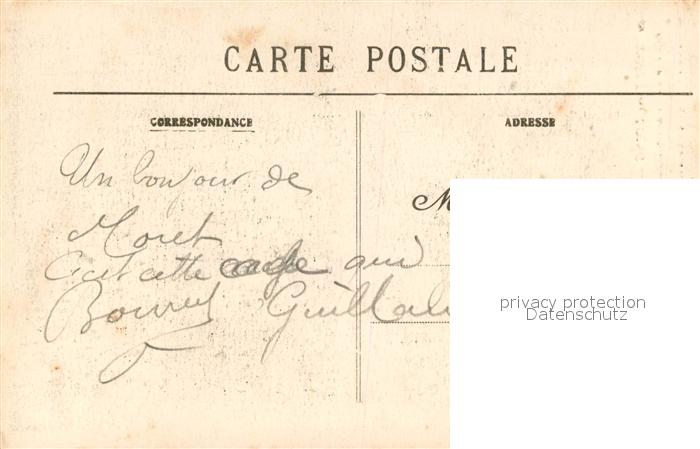 CARTE POSTALE
CORRESPONDANCE
ADRESSE
Un bonjour de
Moret
M
C'est cette qui
privacy protection
Datenschutz